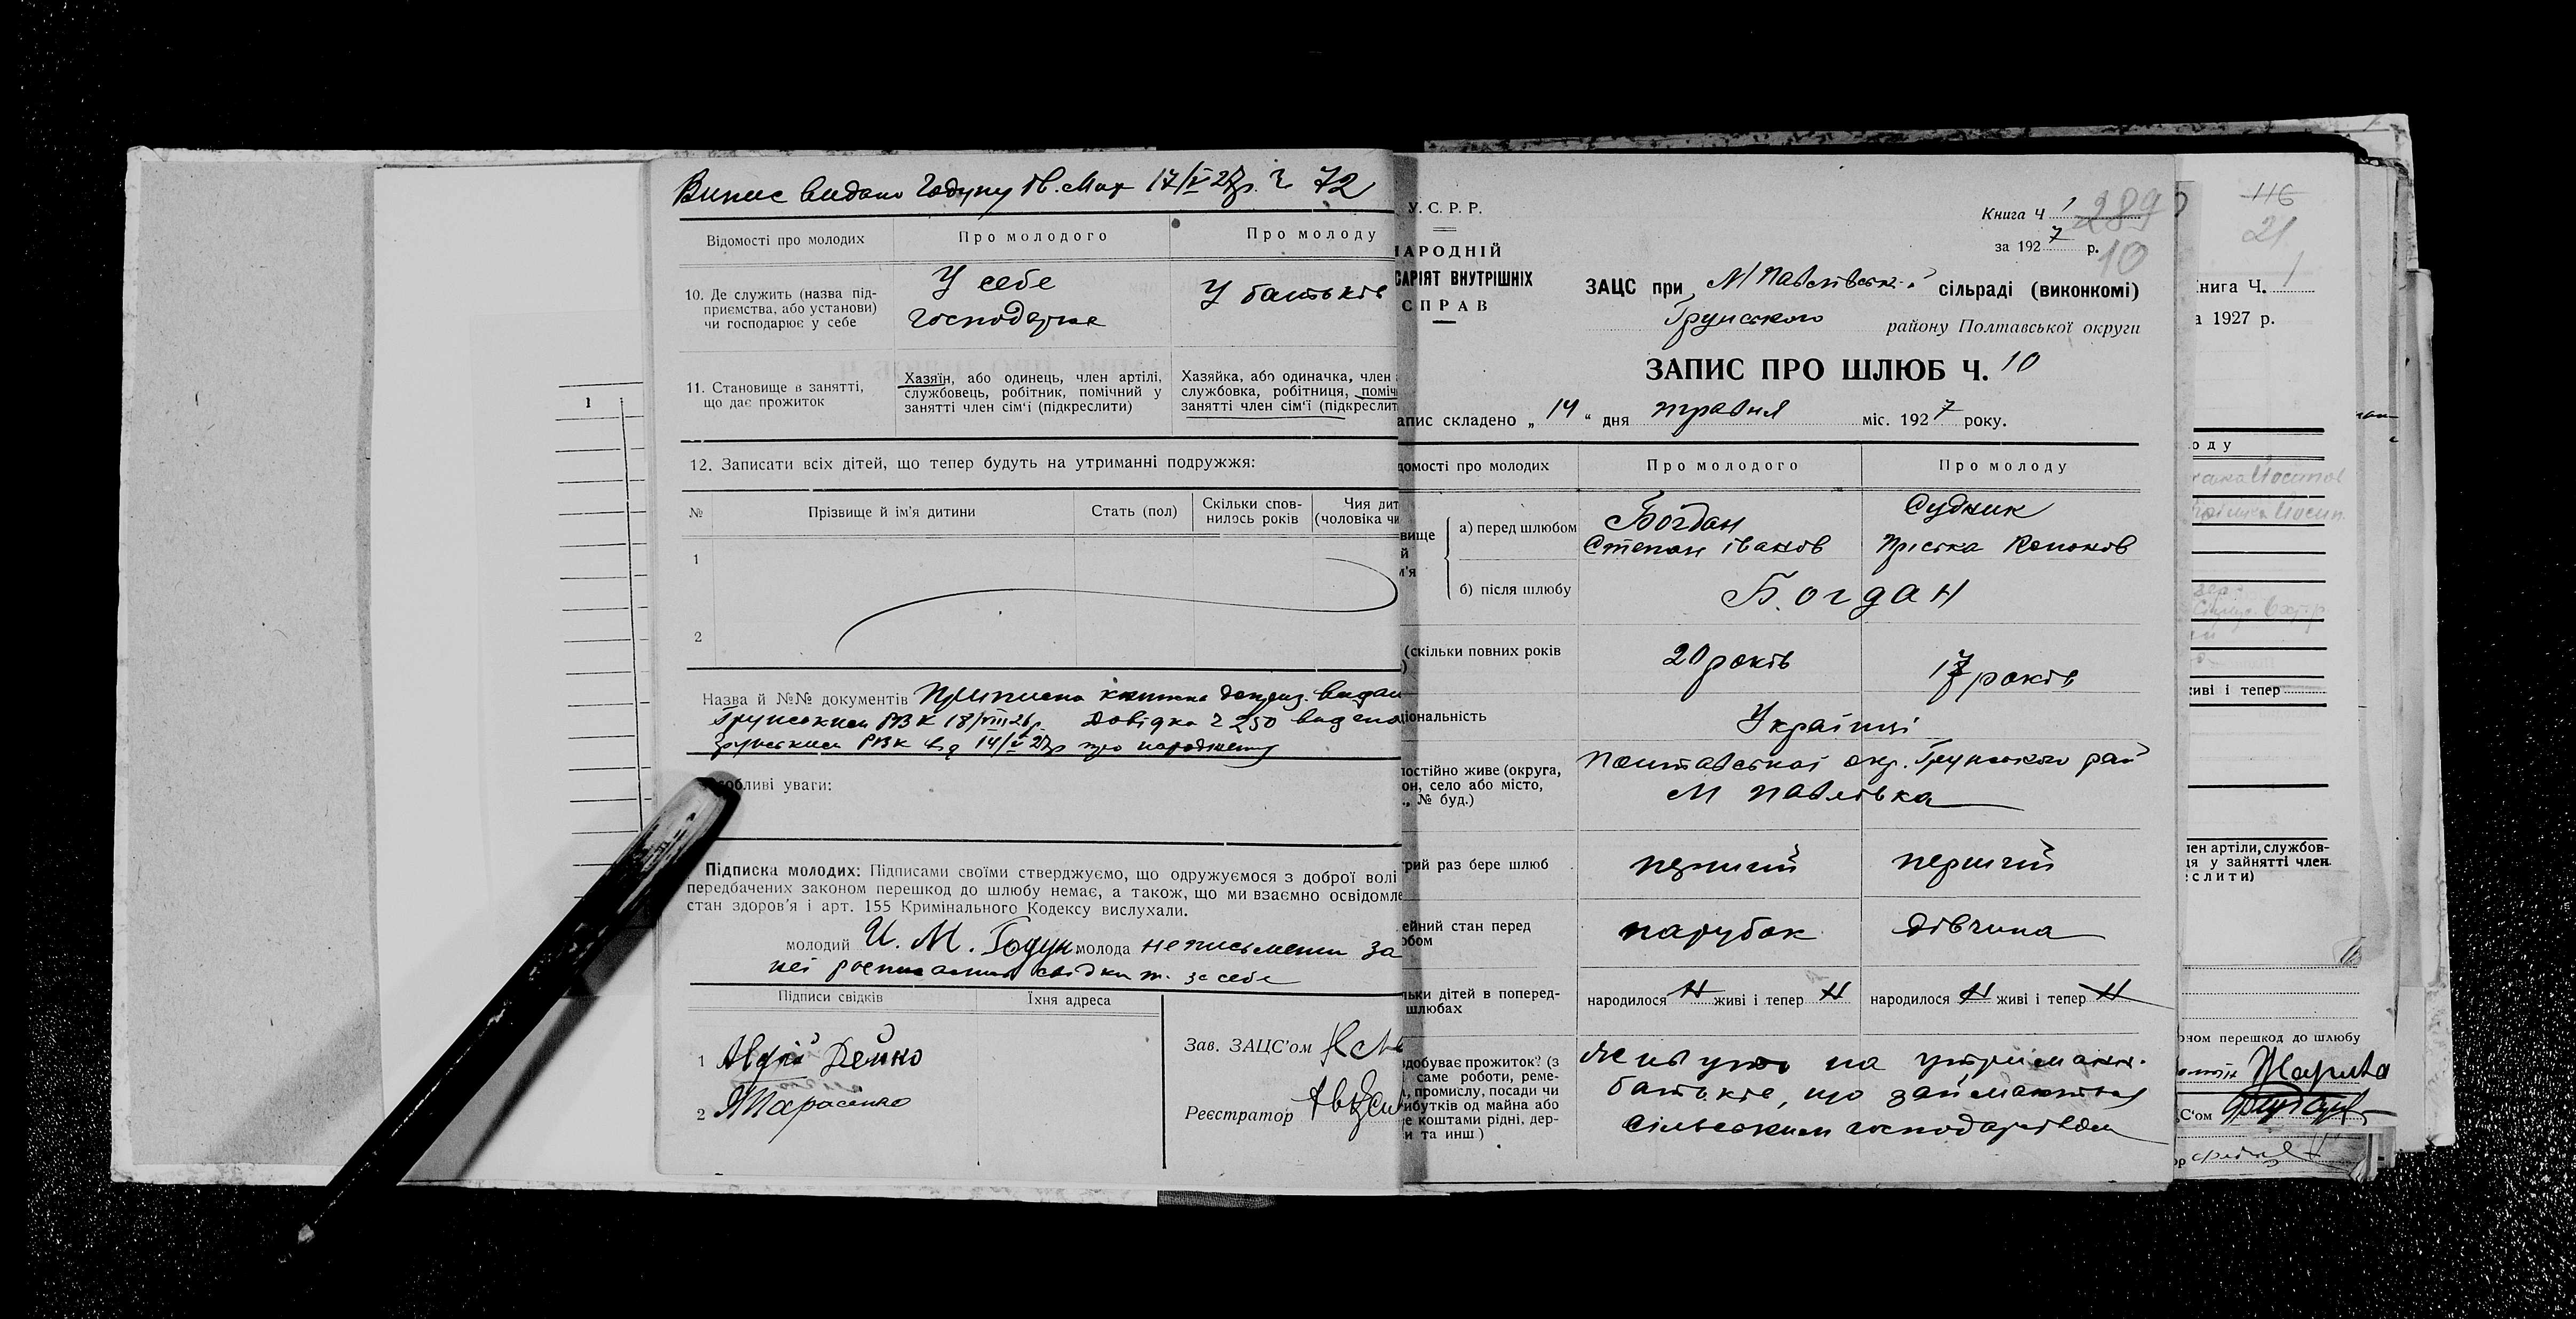 Випис видано Годуну Ів. Мих 17/V 27р. ч 72
Відомості про молодих
Про молодого
Про молоду
10. Де служить (назва під-
приємства, або установи)
чи господарює у себе
У себе
господарює
У батьків
11. Становище в занятті,
що дає прожиток
Хазяїн, або одинець, член артілі,
службовець, робітник, помічний у
занятті член сім'ї (підкреслити)
Хазяйка, або одиначка, член
службовка, робітниця, поміч
занятті член сім'ї (підкреслит
12. Записати всіх дітей, що тепер будуть на утриманні подружжя:
№
Прізвище й ім'я дитини
Стать (пол)
Скільки спов-
нилось років
Чия дит
(чоловіка чи
1
2
Назва й №№ документів Приписна книжка доприз. видан
Грунським РВК 18/VIII 26р. Довідка ч 250 видана
Грунським РВК від 14/V 27р про народження
Особливі уваги:
Підписка молодих: Підписами своїми стверджуємо, що одружуємося з доброї волі
передбачених законом перешкод до шлюбу немає, а також, що ми взаємно освідомле
стан здоров'я і арт. 155 Кримінального Кодексу вислухали.
молодий И. М. Годун молода неписьменна за
неї свідки за себе
Підписи свідків
Їхня адреса
1 Авдій Дейко
2 Тарасенко
Зав. ЗАЦС'ом
Реєстратор
У. С. Р. Р.
НАРОДНІЙ
САРІЯТ ВНУТРІШНІХ
СПРАВ
Книга Ч 1
289
за 1927 р.
10
ЗАЦС при М Павлівськ. сільраді (виконкомі)
Грунського району Полтавської округи
ЗАПИС ПРО ШЛЮБ Ч. 10
апис складено „ 14 “ дня травня міс. 1927 року.
домості про молодих
Про молодого
Про молоду
вище
й
м'я
а) перед шлюбом
Богдан
Степан Іванов
Судник
Пріська Кононов
б) після шлюбу
Богдан
(скільки повних років
20 років
17 років
ціональність
Українці
постійно живе (округа,
он, село або місто,
., № буд.)
Полтавської окр. Грунського рай
М Павлівка
трий раз бере шлюб
перший
перший
ейний стан перед
юбом
парубок
дівчина
льки дітей в поперед-
шлюбах
народилося Н живі і тепер Н
народилося Н живі і тепер Н
здобуває прожиток? (з
саме роботи, реме-
, промислу, посади чи
ибутків од майна або
е коштами рідні, дер-
и та инш )
Живуть на утриманні
батьків, що займаються
сільським господарством
116
21
Книга Ч. 1
а 1927 р.
оду
живі і тепер
лен артіли, службов-
ця у зайнятті член
еслити)
оном перешкод до шлюбу
С'ом
ор